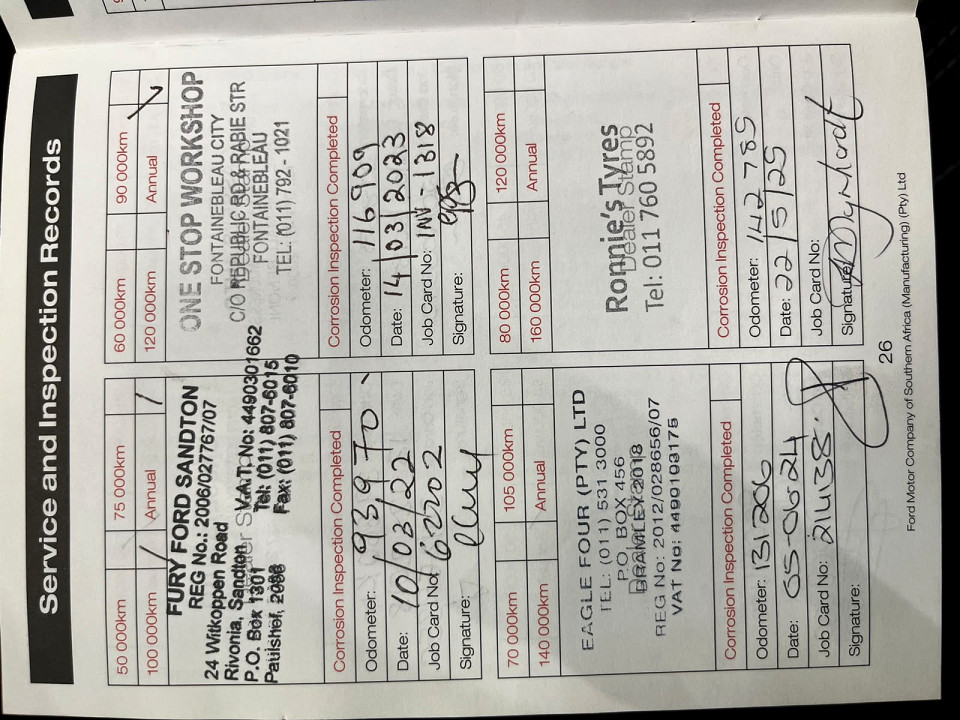 Service and Inspection Records
50 000km
75 000km
100 000km /
Annual /
FURY FORD SANDTON
REG No.: 2006/027767/07
24 Witkoppen Road
Rivonia, Sandton V.A.T. No: 4490301662
P.O. Box 1301 Tel: (011) 807-6015
Paulshof, Fax: (011) 807-6010
Corrosion Inspection Completed
Odometer: 93970
Date: 10/03/22
Job Card No: 62202
Signature:
60 000km
90 000km
120 000km
Annual
ONE STOP WORKSHOP
FONTAINEBLEAU CITY
C/O REPUBLIC RD & RABIE STR
FONTAINEBLEAU
TEL: (011) 792 - 1021
Corrosion Inspection Completed
Odometer: 116909
Date: 14/03/2023
Job Card No: INV-1318
Signature:
70 000km
105 000km
140 000km
Annual
EAGLE FOUR (PTY) LTD
TEL: (011) 531 3000
P.O. BOX 456
BRAMLEY 2018
REG No: 2012/028656/07
VAT No: 4490103175
Corrosion Inspection Completed
Odometer: 131206
Date: 05-06-24
Job Card No: 214138.
Signature:
80 000km
120 000km
160 000km
Annual
Ronnie's Tyres
Dealer Stamp
Tel: 011 760 5892
Corrosion Inspection Completed
Odometer: 142785
Date: 22/5/25
Job Card No:
Signature:
26
Ford Motor Company of Southern Africa (Manufacturing) (Pty) Ltd